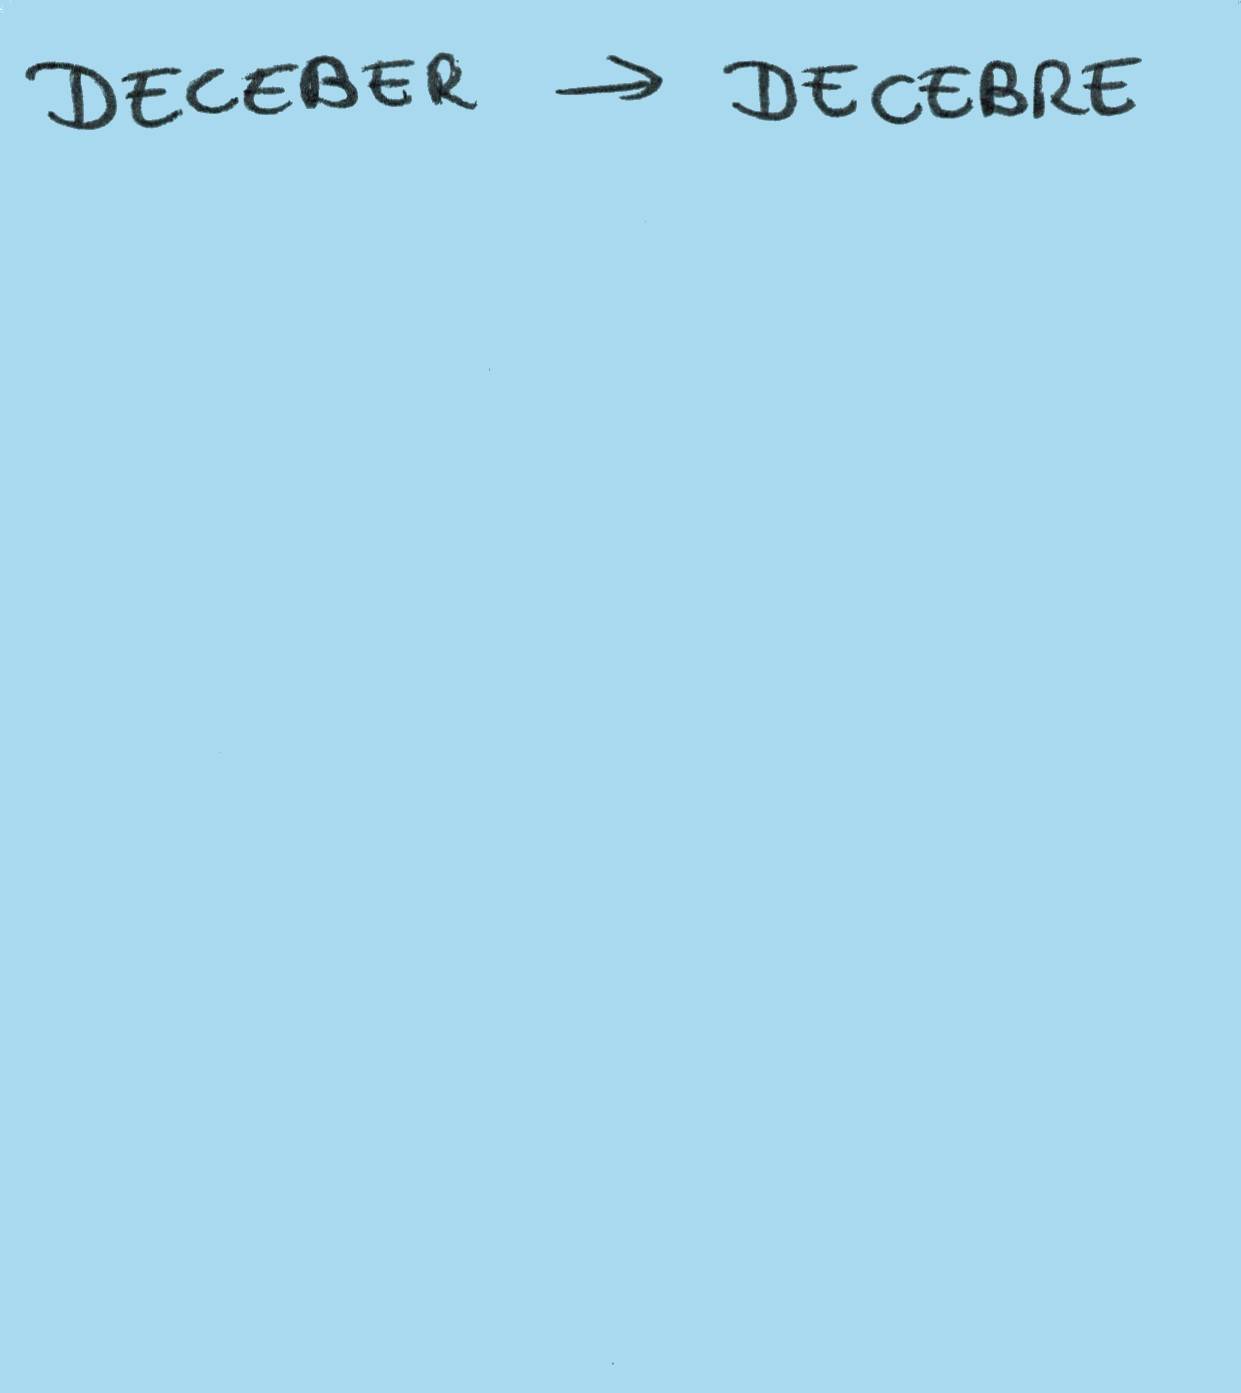 DECEBER → DECEBRE